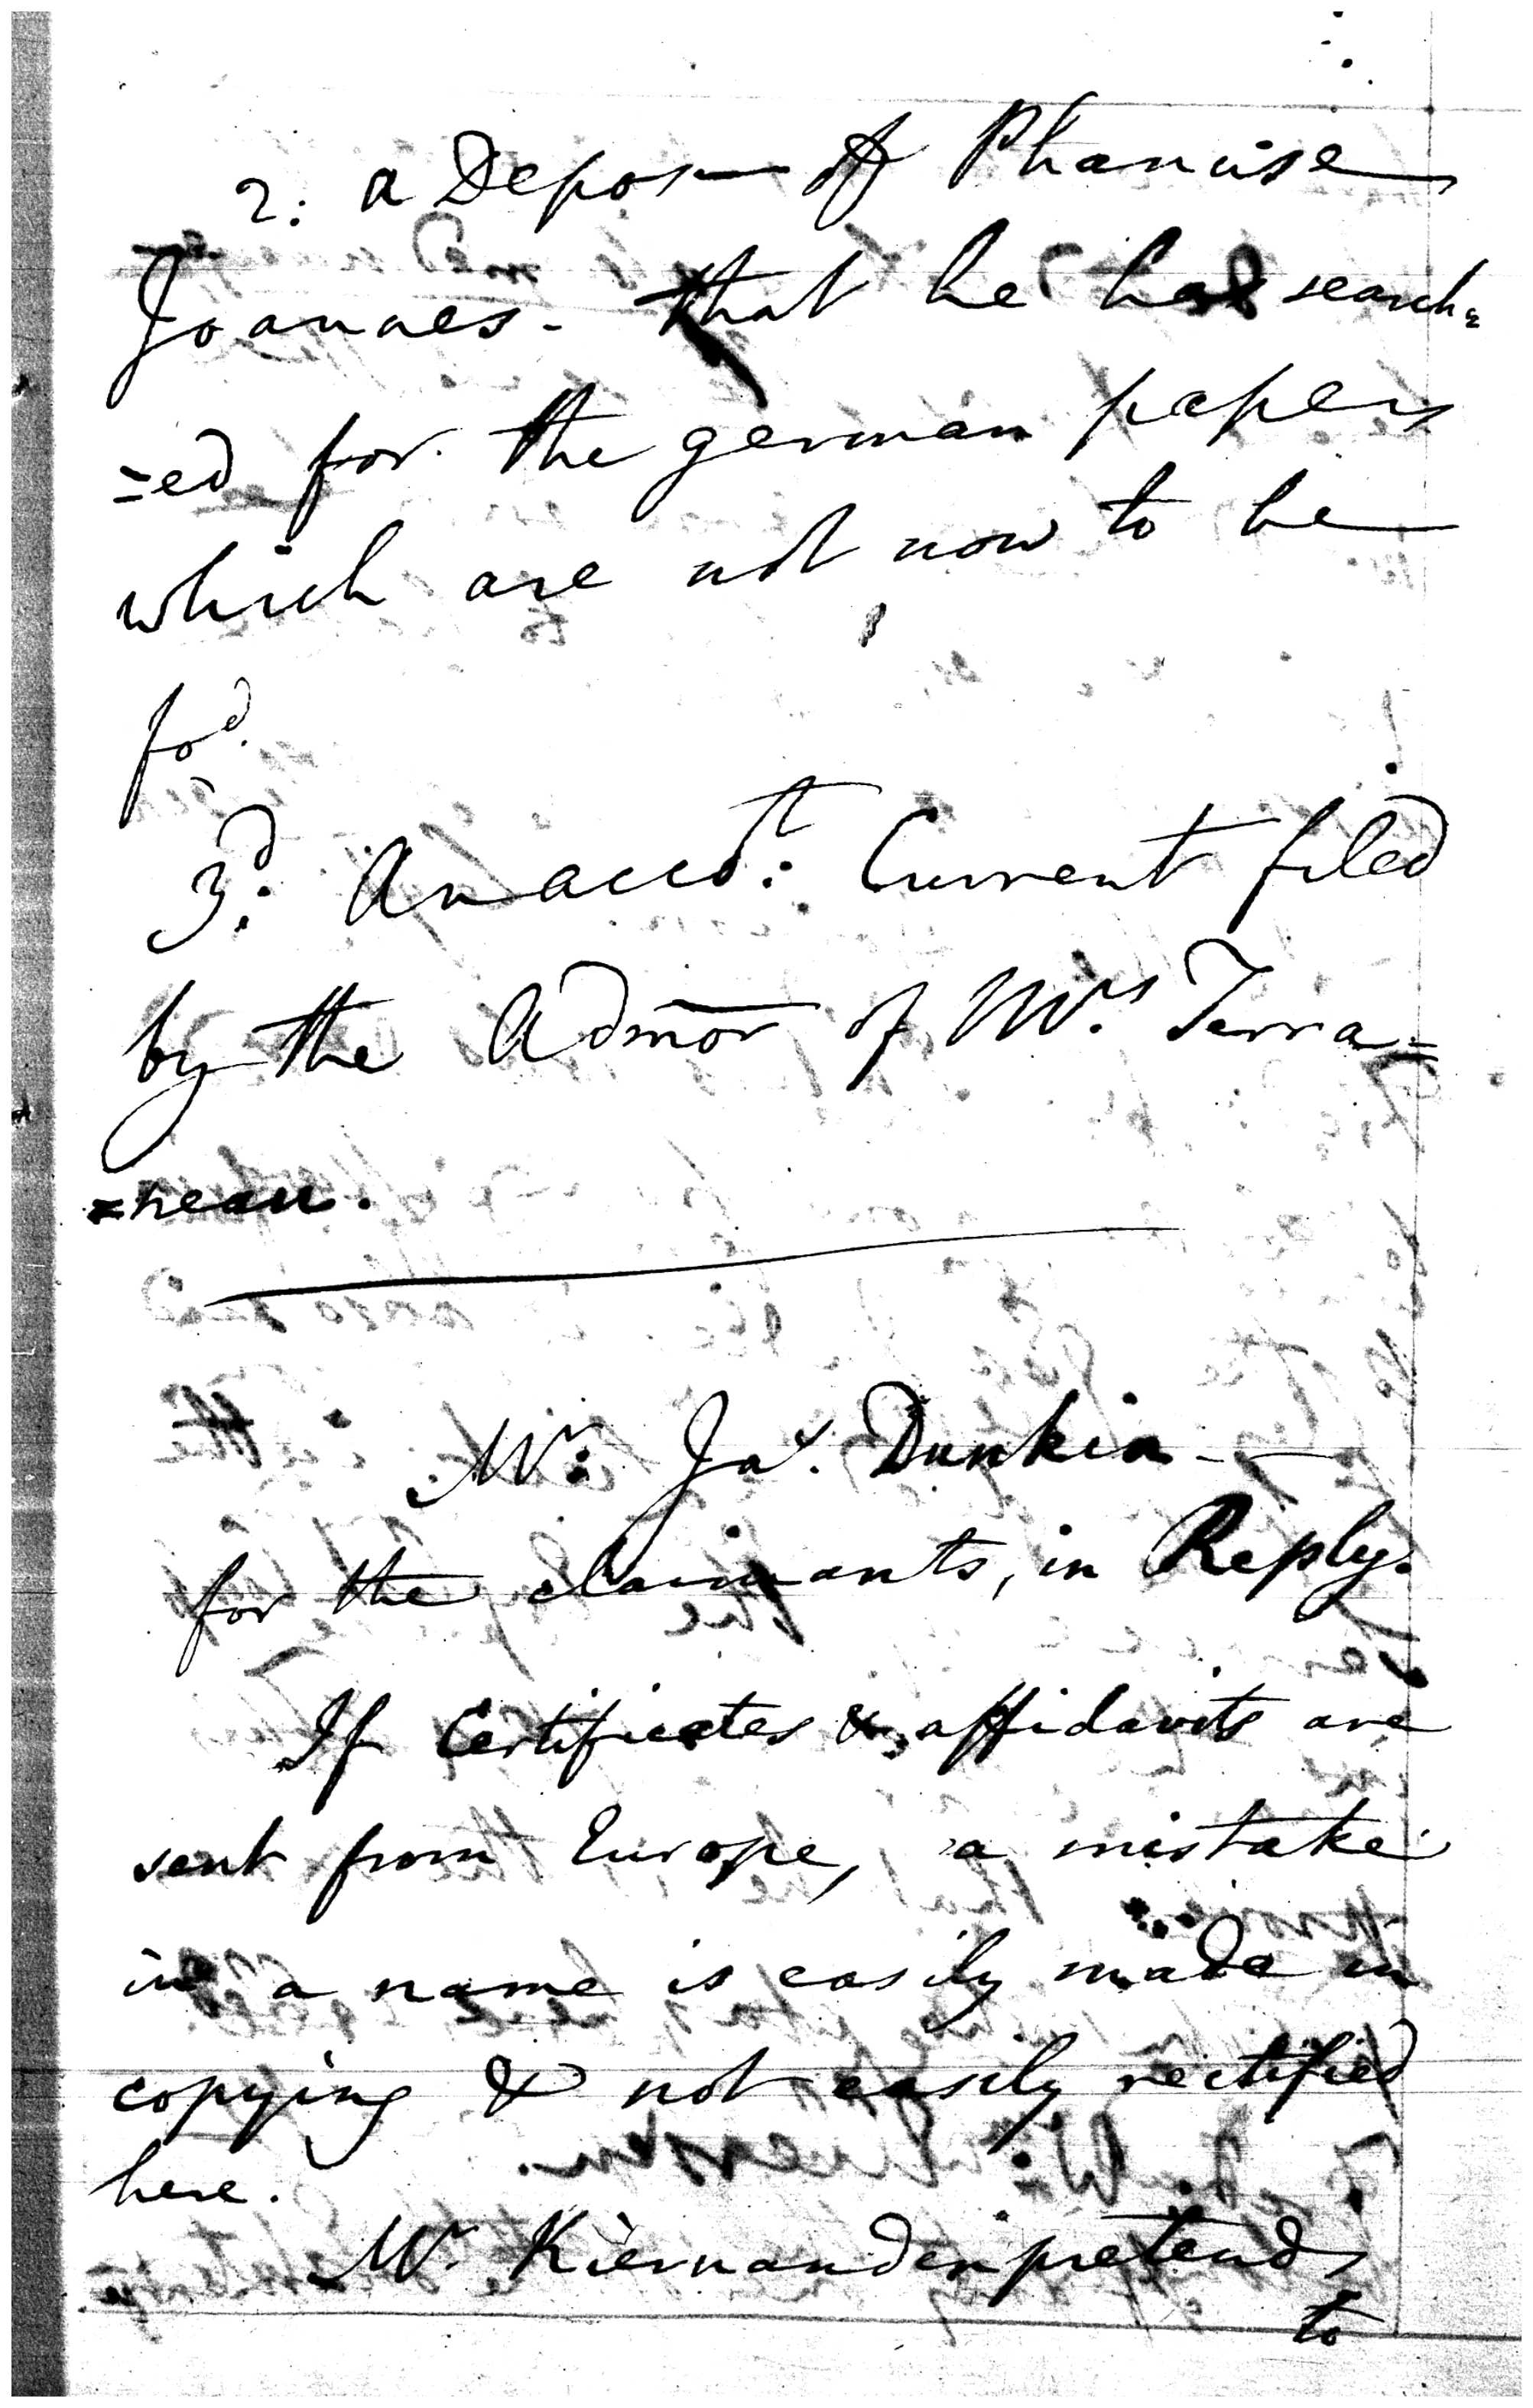 2: a Depos— of Phanuse
Joannes - that he has search=
=ed for the german papers
which are not now to be
fod.
3d: An accot: Current filed
by the Admor of Mrs Terra=
=neau.
Mr: Jas. Dunkin -
for the claimants, in Reply.
If Certificates & affidavits are
sent from Europe, a mistake
in a name is easily made in
copying & not easily rectified
here.
Mr. Kiernander pretends
to